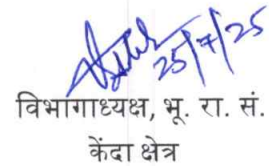 25/7/25
विभागाध्यक्ष, भू. रा. सं.
केंदा क्षेत्र